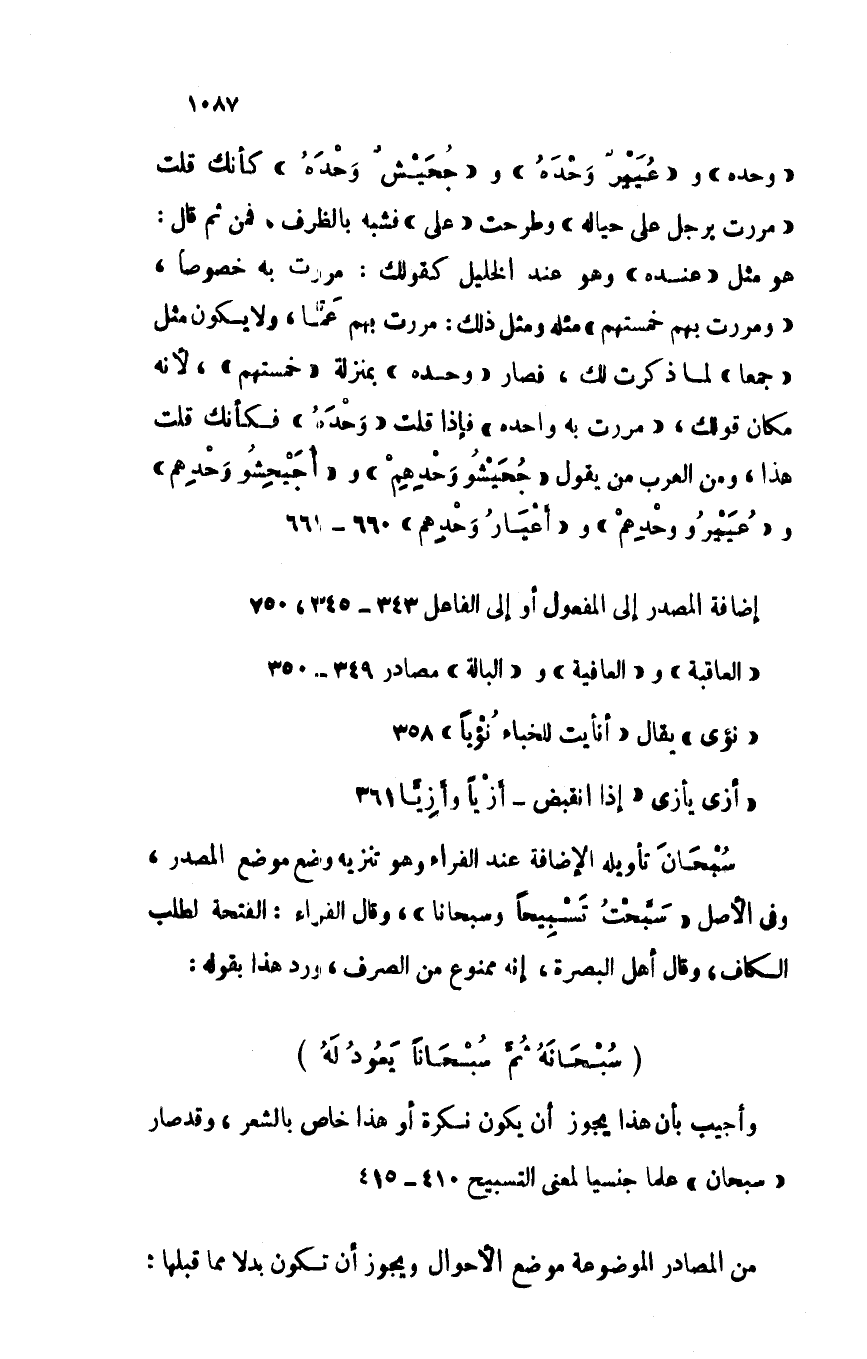 ١٠٨٧
« وحده » و « عُيَيْرٌ وَحْدَهُ » و « جُحَيْشٌ وَحْدَهُ » كأنك قلت
« مررت برجل على حياله » وطرحت « على » فشبه بالظرف ، فمن ثم قال :
هو مثل « عنده » وهو عند الخليل كقولك : مررت به خصوصاً ،
« ومررت بهم خمستهم » مثله ومثل ذلك : مررت بهم عَمًّا ، ولا يكون مثل
« جمعا » لما ذكرت لك ، فصار « وحده » بمنزلة « خمستهم » ، لأنه
مكان قولك ، « مررت به واحده » فإذا قلت « وَحْدَهُ » فكأنك قلت
هذا ، ومن العرب من يقول « جُحَيْشُو وَحْدِهِمْ » و « أُجَيْحِشُو وَحْدِهم »
و « عُيَيْرُو وحْدِهمْ » و « أعْيَارُ وَحْدِهم » ٦٦٠ – ٦٦١
إضافة المصدر إلى المفعول أو إلى الفاعل ٣٤٣ – ٣٤٥ ، ٧٥٠
« العاقبة » و « العافية » و « البالة » مصادر ٣٤٩ – ٣٥٠
« نؤى » يقال « أنأيت للخباء نُؤْياً » ٣٥٨
« أزى يأزى » إذا انقبض – أزْياً وأزِيًّا ٣٦١
سُبْحَانَ تأويله الإضافة عند الفراء وهو تنزيه وضع موضع المصدر ،
وفى الأصل « سَبَّحْتُ تَسْبِيحاً وسبحانا » ، وقال الفراء : الفتحة لطلب
الكاف ، وقال أهل البصرة ، إنه ممنوع من الصرف ، ورد هذا بقوله :
( سُبْحَانَهُ ثُمَّ سُبْحَاناً يَعُودُ لَهُ )
وأجيب بأن هذا يجوز أن يكون نكرة أو هذا خاص بالشعر ، وقد صار
« سبحان » علما جنسيا لمعنى التسبيح ٤١٠ – ٤١٥
من المصادر الموضوعة موضع الأحوال ويجوز أن تكون بدلا مما قبلها :